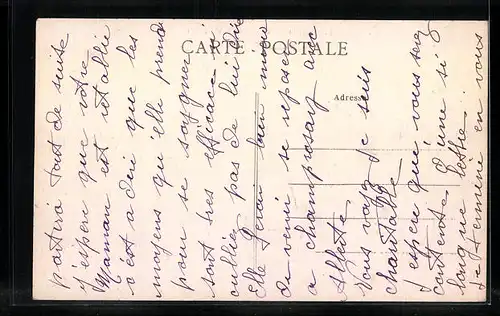 CARTE POSTALE
Adresse
partira tout de suite
j'espère que votre
Maman est rétablie
c'est a dire que les
moyens qu'elle prend
pour se soigner
sont tres efficaces n'
oubliez pas de lui dire
Elle ferait bien mieux
de venir se reposer
a champrosay avec
Alberte
vous voyez je suis
charitable
j'espère que vous serez
contente d'une si
longue lettre.
je termine en vous